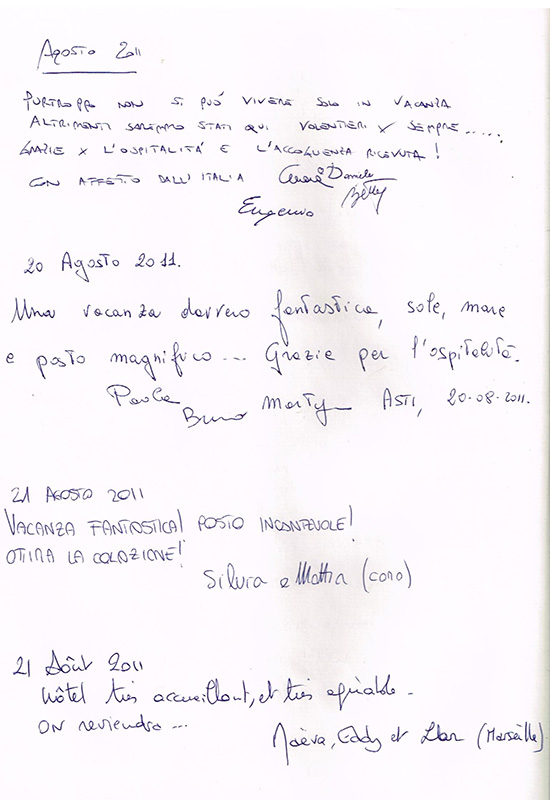 Agosto 2011
PURTROPPO NON SI PUÓ VIVERE SOLO IN VACANZA
ALTRIMENTI SAREMMO STATI QUI VOLENTIERI X SEMPRE.....
GRAZIE X L'OSPITALITÁ E L'ACCOGLIENZA RICEVUTA!
CON AFFETTO DALL'ITALIA Daniele
Betty
Eugenio
20 Agosto 2011.
Una vacanza davvero fantastica, sole, mare
e posto magnifico... Grazie per l'ospitalità.
Paola
Bruno Martyn ASTI, 20-08-2011.
21 AGOSTO 2011
VACANZA FANTASTICA! POSTO INCANTEVOLE!
OTTIMA LA COLAZIONE!
Silvia e Mattia (como)
21 Août 2011
hôtel très accueillant, et très agréable.
On reviendra...
Maëva, Eddy et (Marseille)